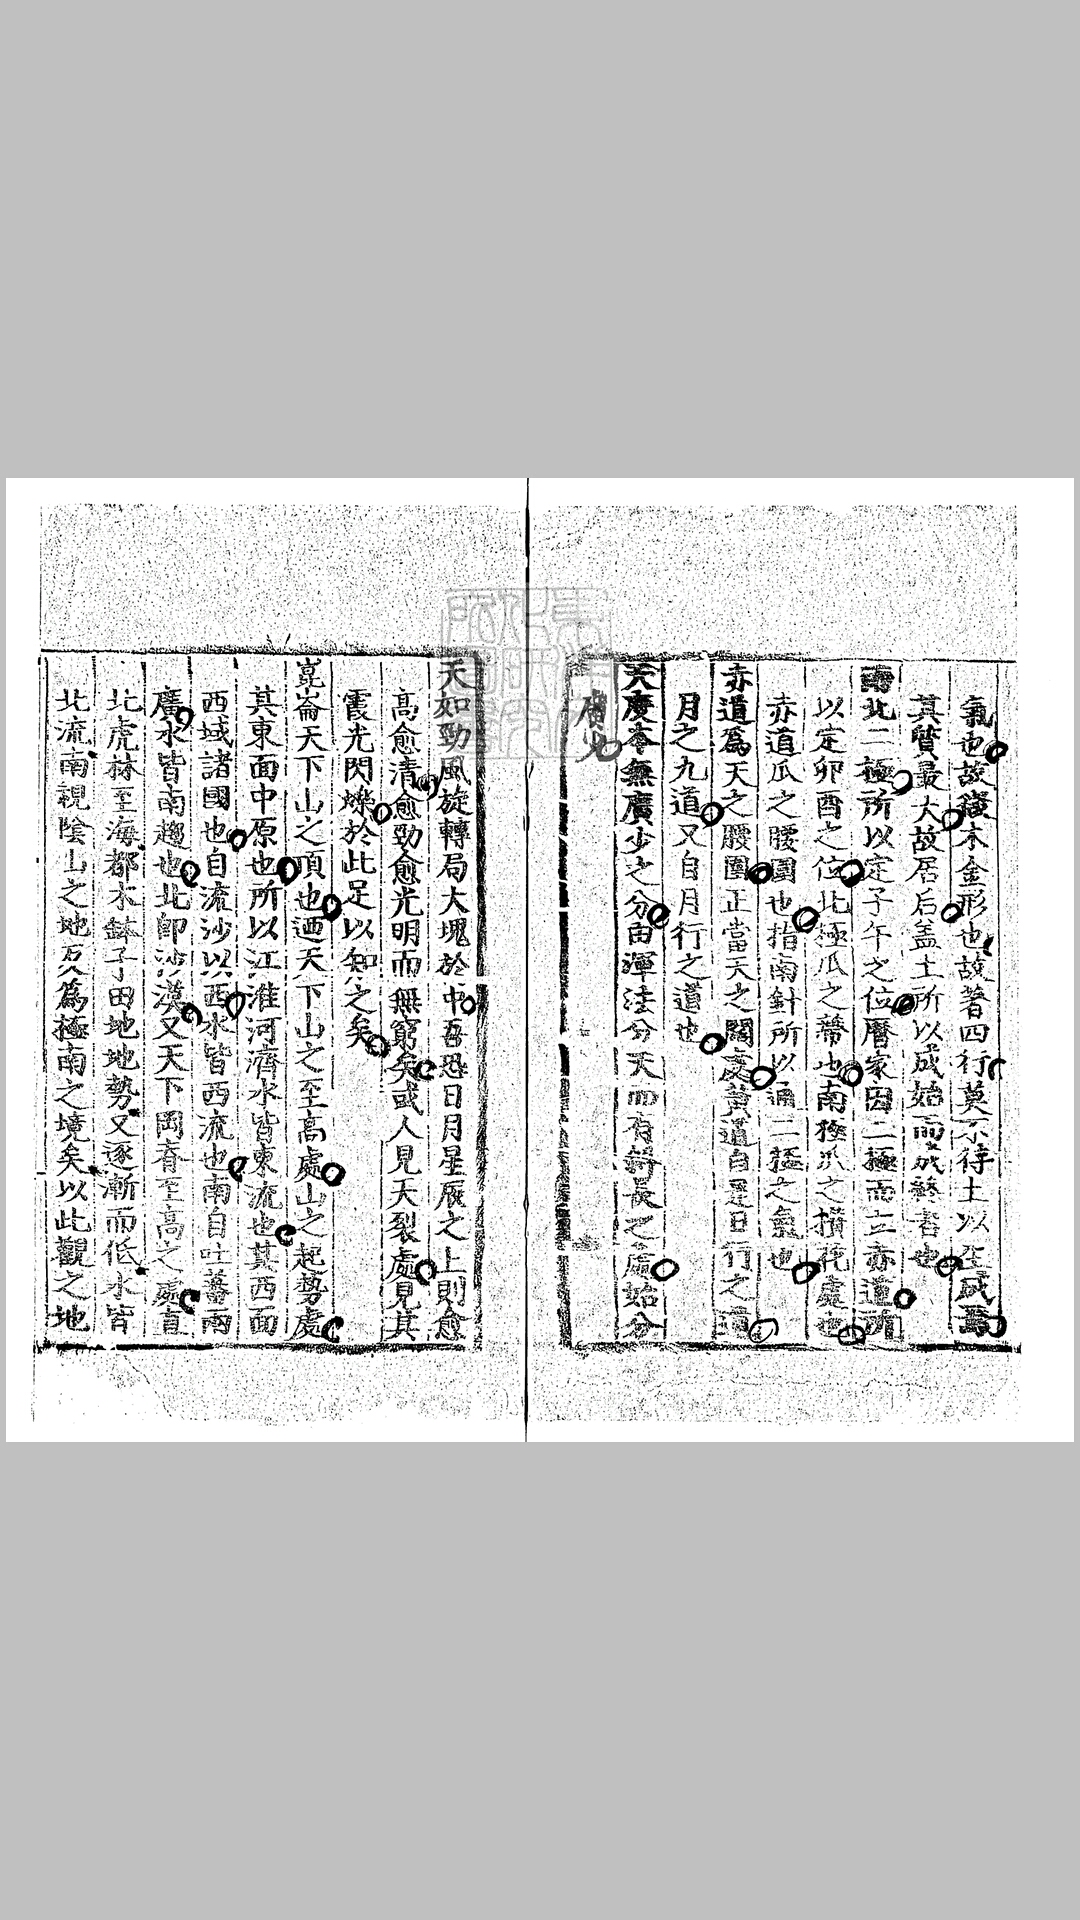 氣也故木金形也故著四行莫不待土以至成焉
其質最大故居后盖土所以成始而成終者也
南北二極所以定子午之位曆家因二極而立赤道所
以定卯酉之位北極瓜之蔕也南極瓜之攢花處也
赤道瓜之腰圍也指南針所以通二極之氣也
赤道爲天之腰圍正當天之闊處黃道自是日行之道
月之九道又自月行之道也
天度本無廣少之分由渾法分天而有斜長之處始分
廣少
天如勁風旋轉局大塊於中吾恐日月星辰之上則愈
高愈清愈勁愈光明而無窮矣或人見天裂處見其
霞光閃爍於此足以知之矣
崑崙天下山之頂也迺天下山之至高處山之起勢處
其東面中原也所以江淮河濟水皆東流也其西面
西域諸國也自流沙以西水皆西流也南自吐蕃兩
廣水皆南趨也北卽沙漠又天下岡脊至高之處直
北虎林至海都木鉢子田地地勢又逐漸而低水皆
北流南視陰山之地反爲極南之境矣以此觀之地